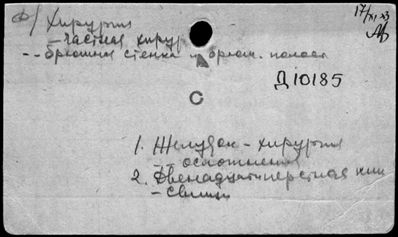 Ф/ Хирургия
17/XI 23
– частная хирур
-- брюшная стенка и брюш. полост
Д 10185
1. Желудок – хирургия
-- осложнения
2. Двенадцатиперстная киш
– свищи